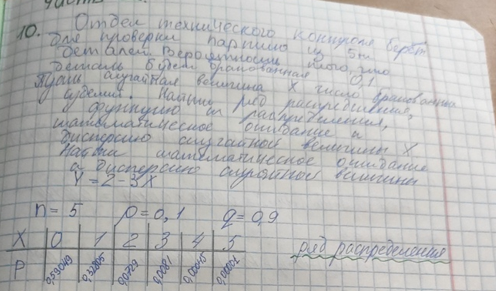 10. Отдел технического контроля берёт
для проверки партию из 5ти
деталей. Вероятность того, что
деталь будет бракованная 0,1
случайная величина X число бракованных
изделий. Найти ряд распределения,
и функцию распределения,
математическое ожидание и
дисперсию случайной величины X
Найти математическое ожидание
и дисперсию случайной величины
Y = 2 - 3X
n = 5 p = 0,1 q = 0,9
X 0 1 2 3 4 5 ряд распределения
P 0,59049 0,32805 0,0729 0,0081 0,00045 0,00001